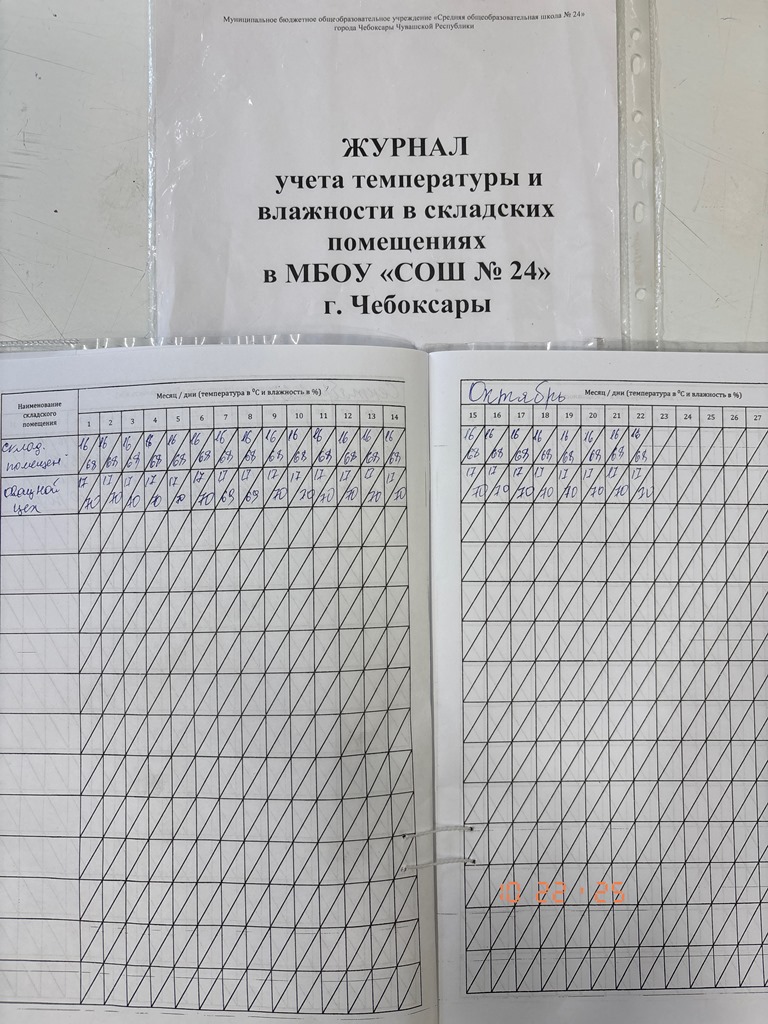 Муниципальное бюджетное общеобразовательное учреждение «Средняя общеобразовательная школа № 24»
города Чебоксары Чувашской Республики
ЖУРНАЛ
учета температуры и
влажности в складских
помещениях
в МБОУ «СОШ № 24»
г. Чебоксары
Наименование складского помещения
Месяц / дни (температура в ⁰С и влажность в %)
1 2 3 4 5 6 7 8 9 10 11 12 13 14
склад. 16 16 16 16 16 16 16 16 16 16 16 16 16 16
помещен 68 68 68 68 68 68 68 68 68 68 68 68 68 68
овощной 17 17 17 17 17 17 17 17 17 17 17 17 17 17
цех 70 70 70 70 70 70 69 69 70 70 70 70 70 70
Октябрь Месяц / дни (температура в ⁰С и влажность в %)
15 16 17 18 19 20 21 22 23 24 25 26 27
16 16 16 16 16 16 16 16
68 68 68 68 68 68 68 68
17 17 17 17 17 17 17 17
70 70 70 70 70 70 70 70
10 22 '25